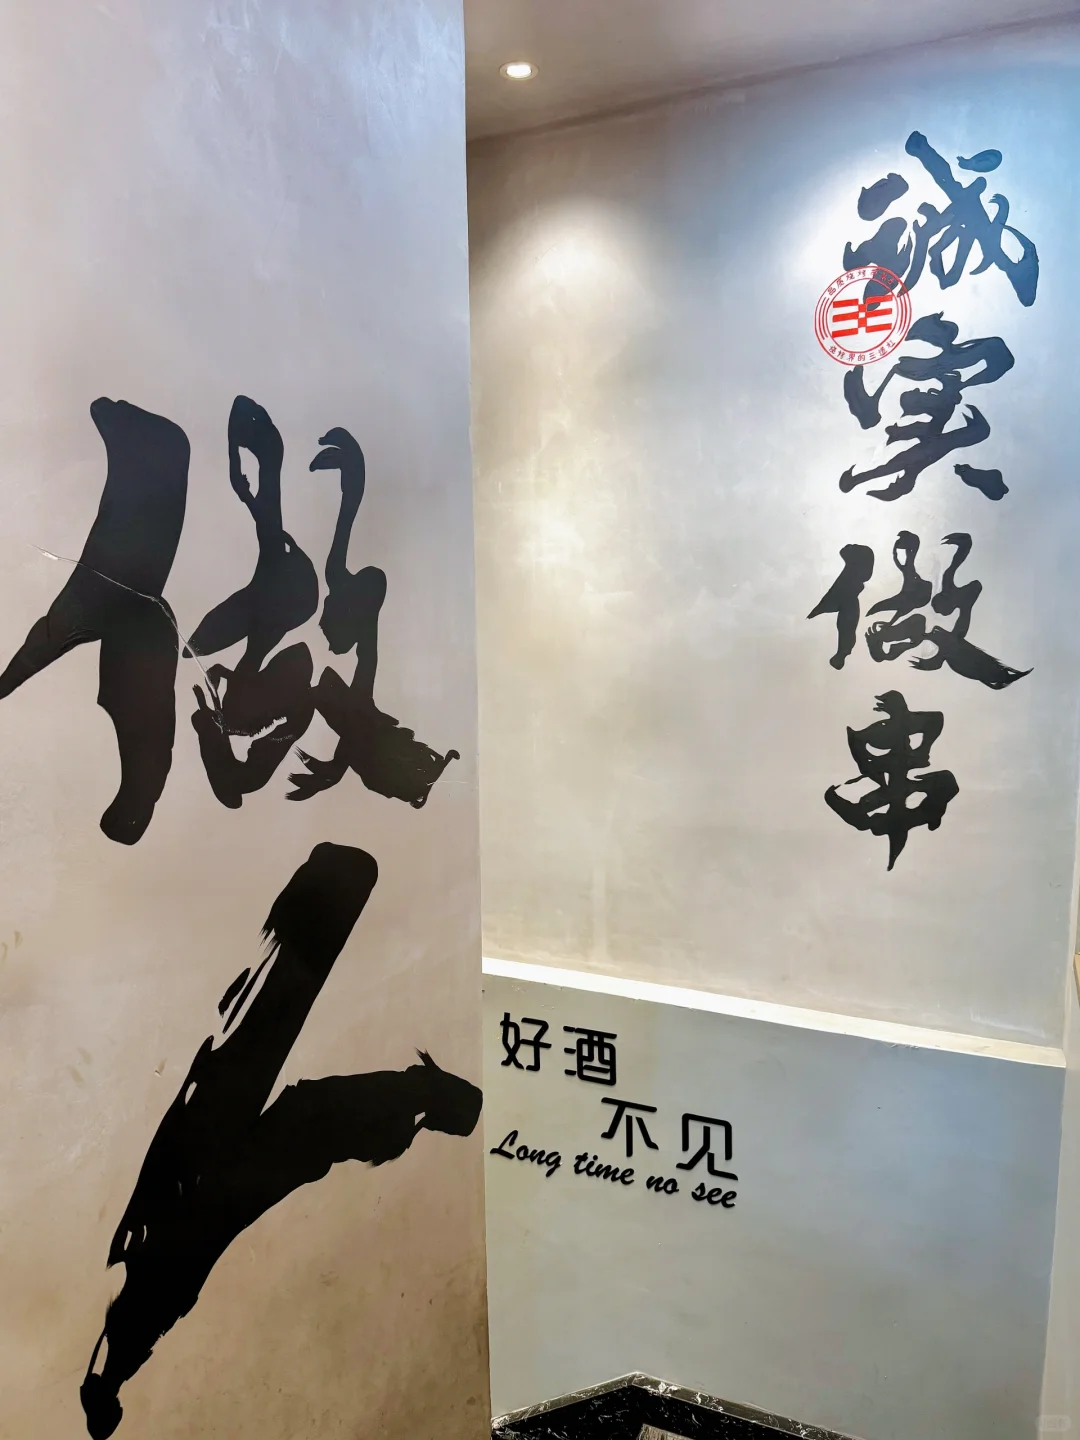 做人
诚实做串
烧烤界的三道杠
好酒
不见
Long time no see